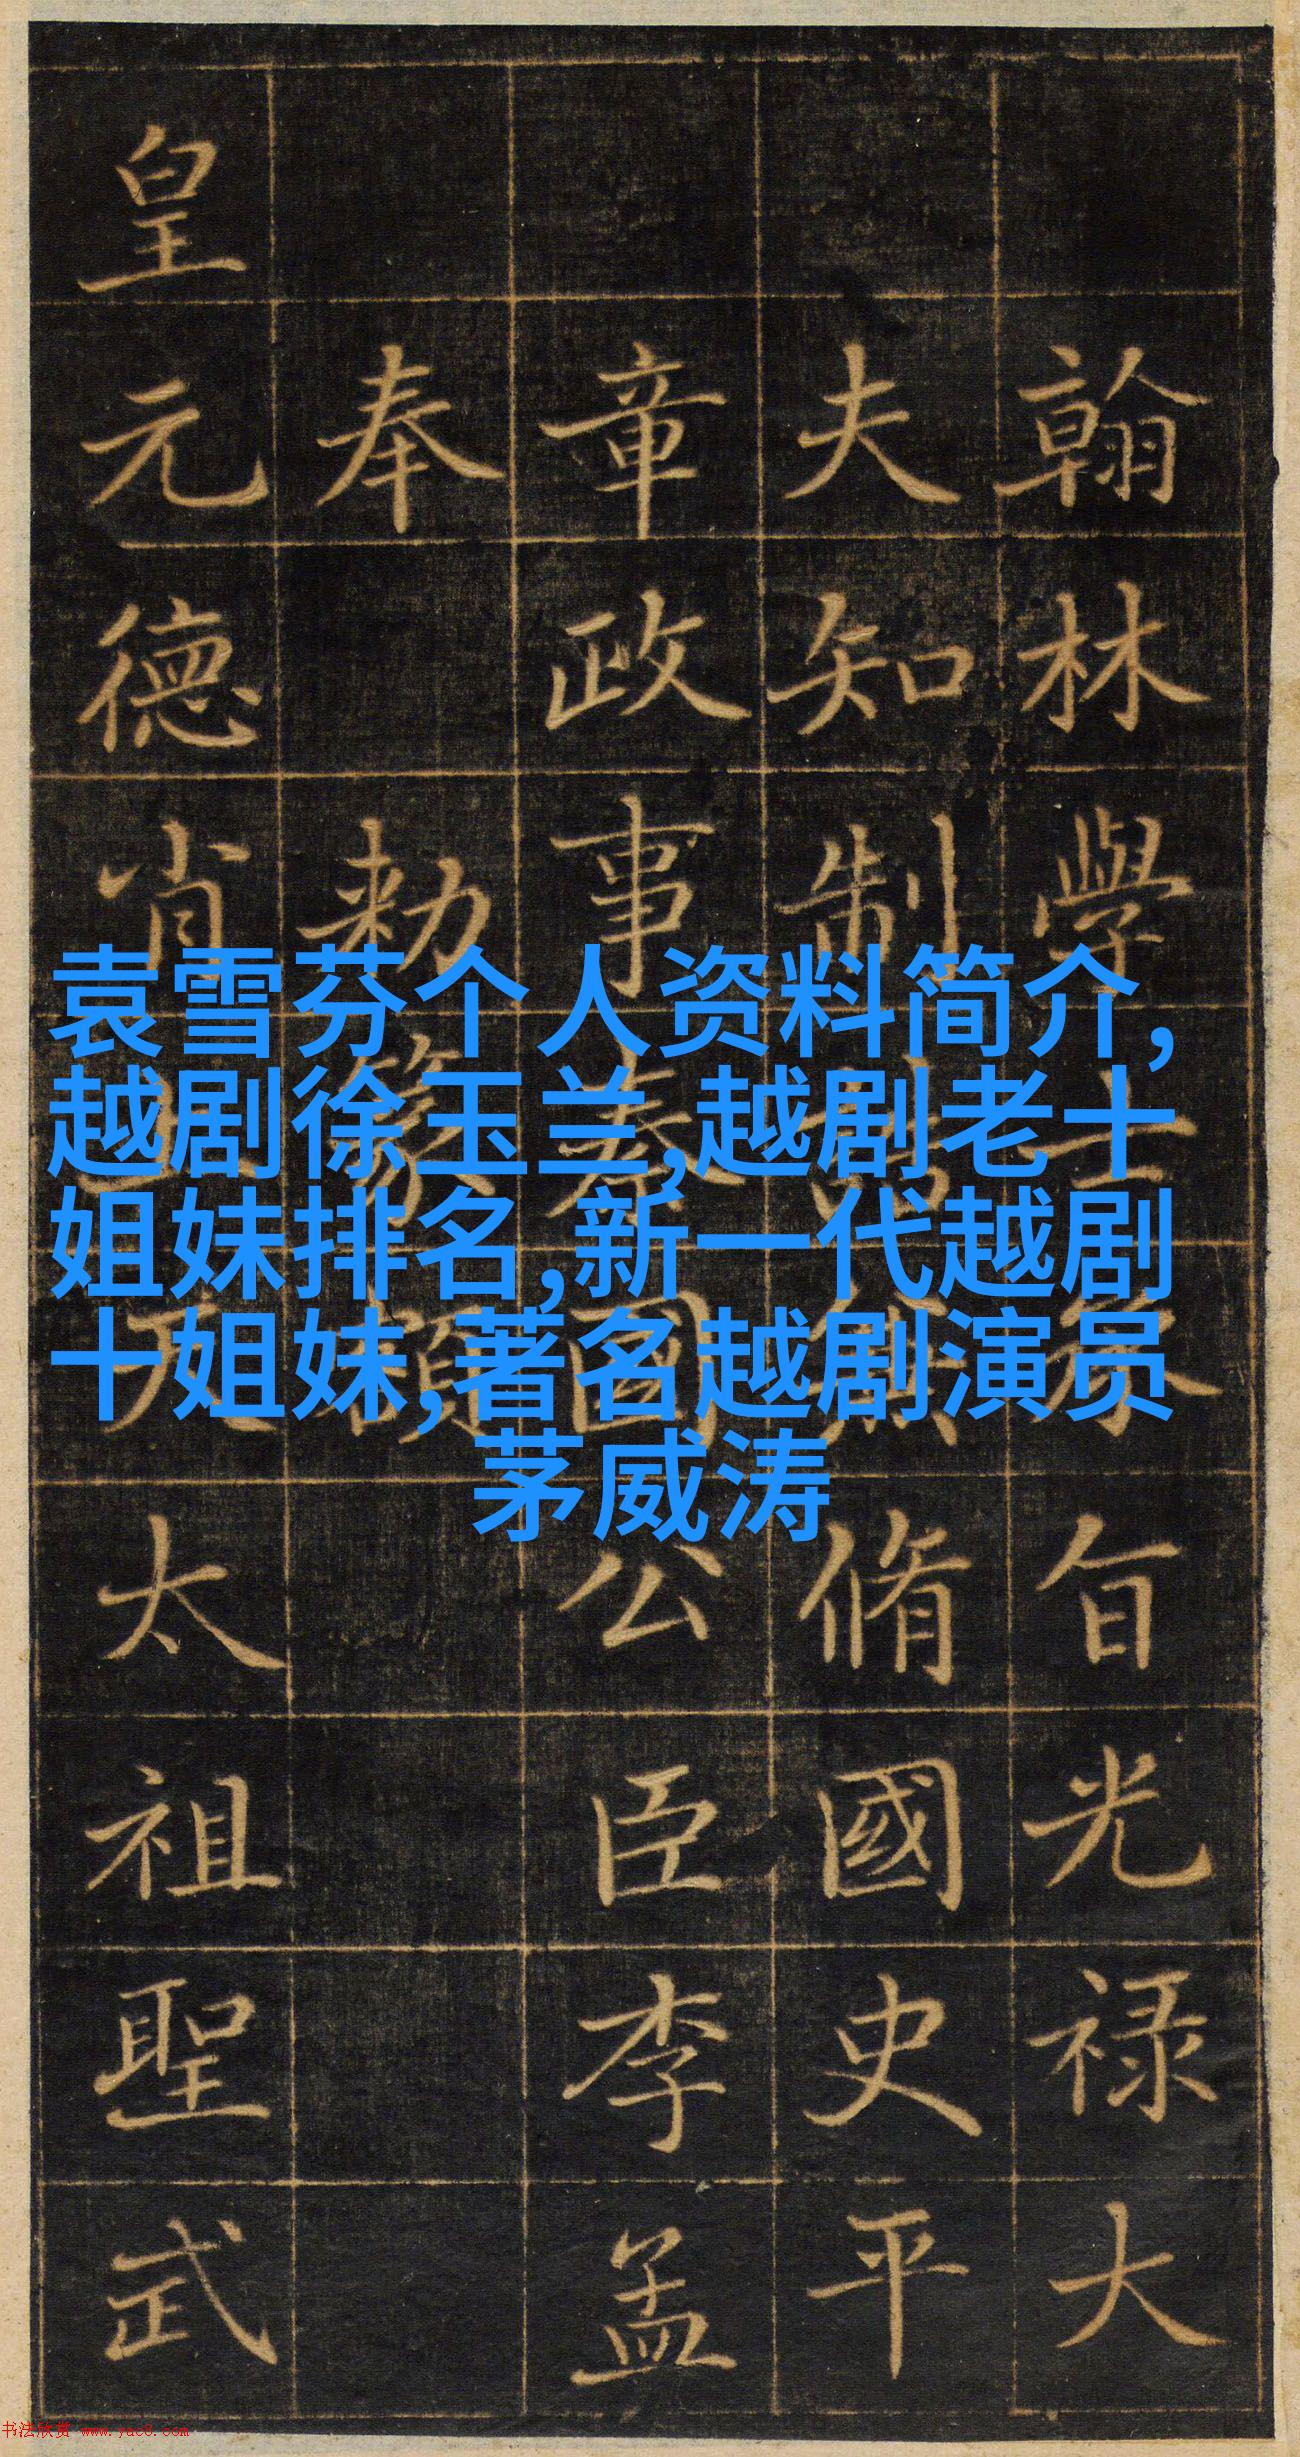 袁雪芬个人资料简介,
越剧徐玉兰,越剧老十
姐妹排名,新一代越剧
十姐妹,著名越剧演员
茅威涛
翰林學士承旨光禄大
夫知制誥兼脩國史平
章政事秦國公臣李孟
奉勑篆額
皇元德肖天太祖聖武
书法欣赏 www.yac8.com